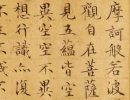 摩訶般若波
觀自在菩薩
見五蘊皆空
異空空不異
想行識亦復